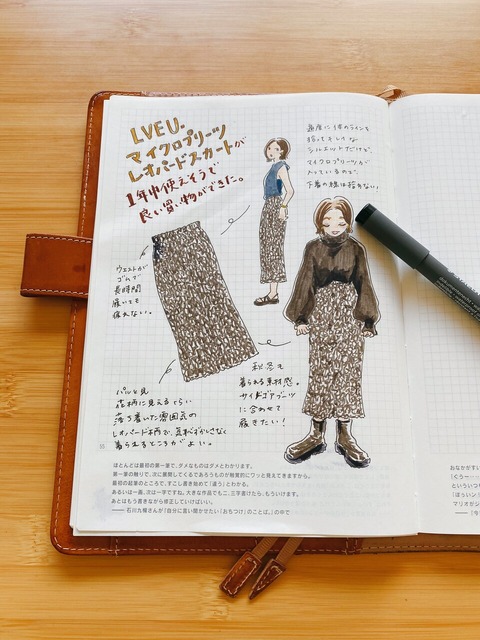 LVEU.
マイクロプリーツ
レオパードスカートが
1年中使えそうで
良い買い物ができた。
適度に体のラインを
拾ってキレイな
シルエットだけど、
マイクロプリーツが
入っているので、
下着の線は拾わない!
ウエストが
ゴムで
長時間
履いても
疲れない。
パッと見
花柄に見えるくらい
落ち着いた雰囲気の
レオパード柄で、気恥ずかしさなく
着られるところがよい。
秋冬も
着られる素材感。
サイドゴアブーツ
に合わせて
履きたい!
55
ほとんどは最初の第一筆で、ダメなものはダメとわかります。
第一筆の触りで、次に展開してくるであろうものが触覚的にワッと見えてきますから。
最初の起筆のところで、すこし書き始めて「違う」とわかる。
あるいは一画、次は一字ですね。大きな作品でも二、三字書けたら、もういけます。
あとはもう書きながら修正していけばいい。
──石川九楊さんが『自分に言い聞かせたい「おちつけ」のことば。』の中で
おなかがすい
「ぐぅ〜…
といういつ
「ほぅいン!
マリオがジ
──『今